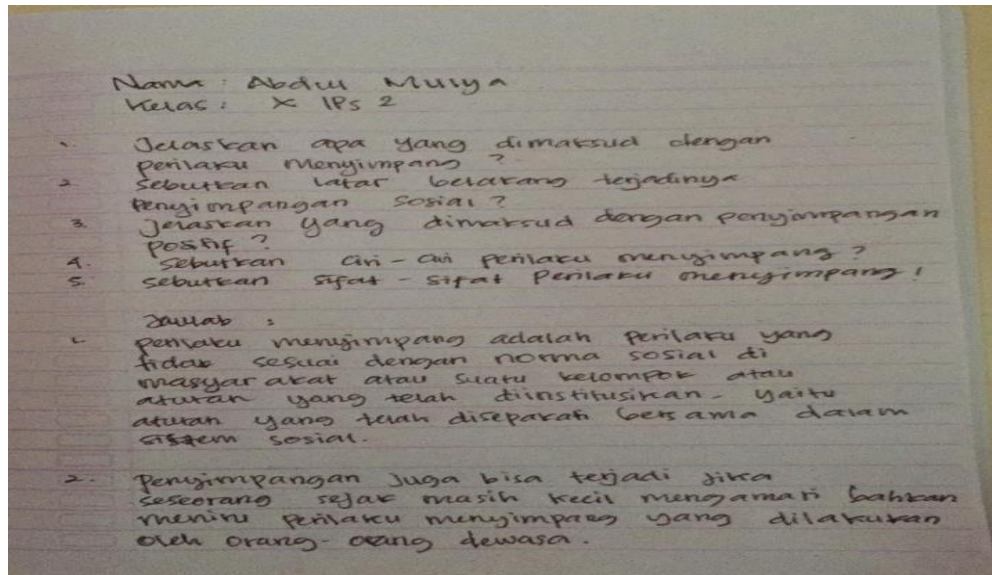 Nama : Abdul Mulya
Kelas : X IPS 2
1. Jelaskan apa yang dimaksud dengan
perilaku menyimpang ?
2. Sebutkan latar belakang terjadinya
penyimpangan sosial ?
3. Jelaskan yang dimaksud dengan penyimpangan
positif ?
4. Sebutkan ciri - ciri perilaku menyimpang ?
5. Sebutkan sifat - sifat Perilaku menyimpang !
Jawab :
1. perilaku menyimpang adalah perilaku yang
tidak sesuai dengan norma sosial di
masyarakat atau suatu kelompok atau
aturan yang telah diinstitusikan - yaitu
aturan yang telah disepakati bersama dalam
sistem sosial.
2. Penyimpangan Juga bisa terjadi jika
seseorang sejak masih kecil mengamati bahkan
meniru perilaku menyimpang yang dilakukan
oleh orang - orang dewasa .